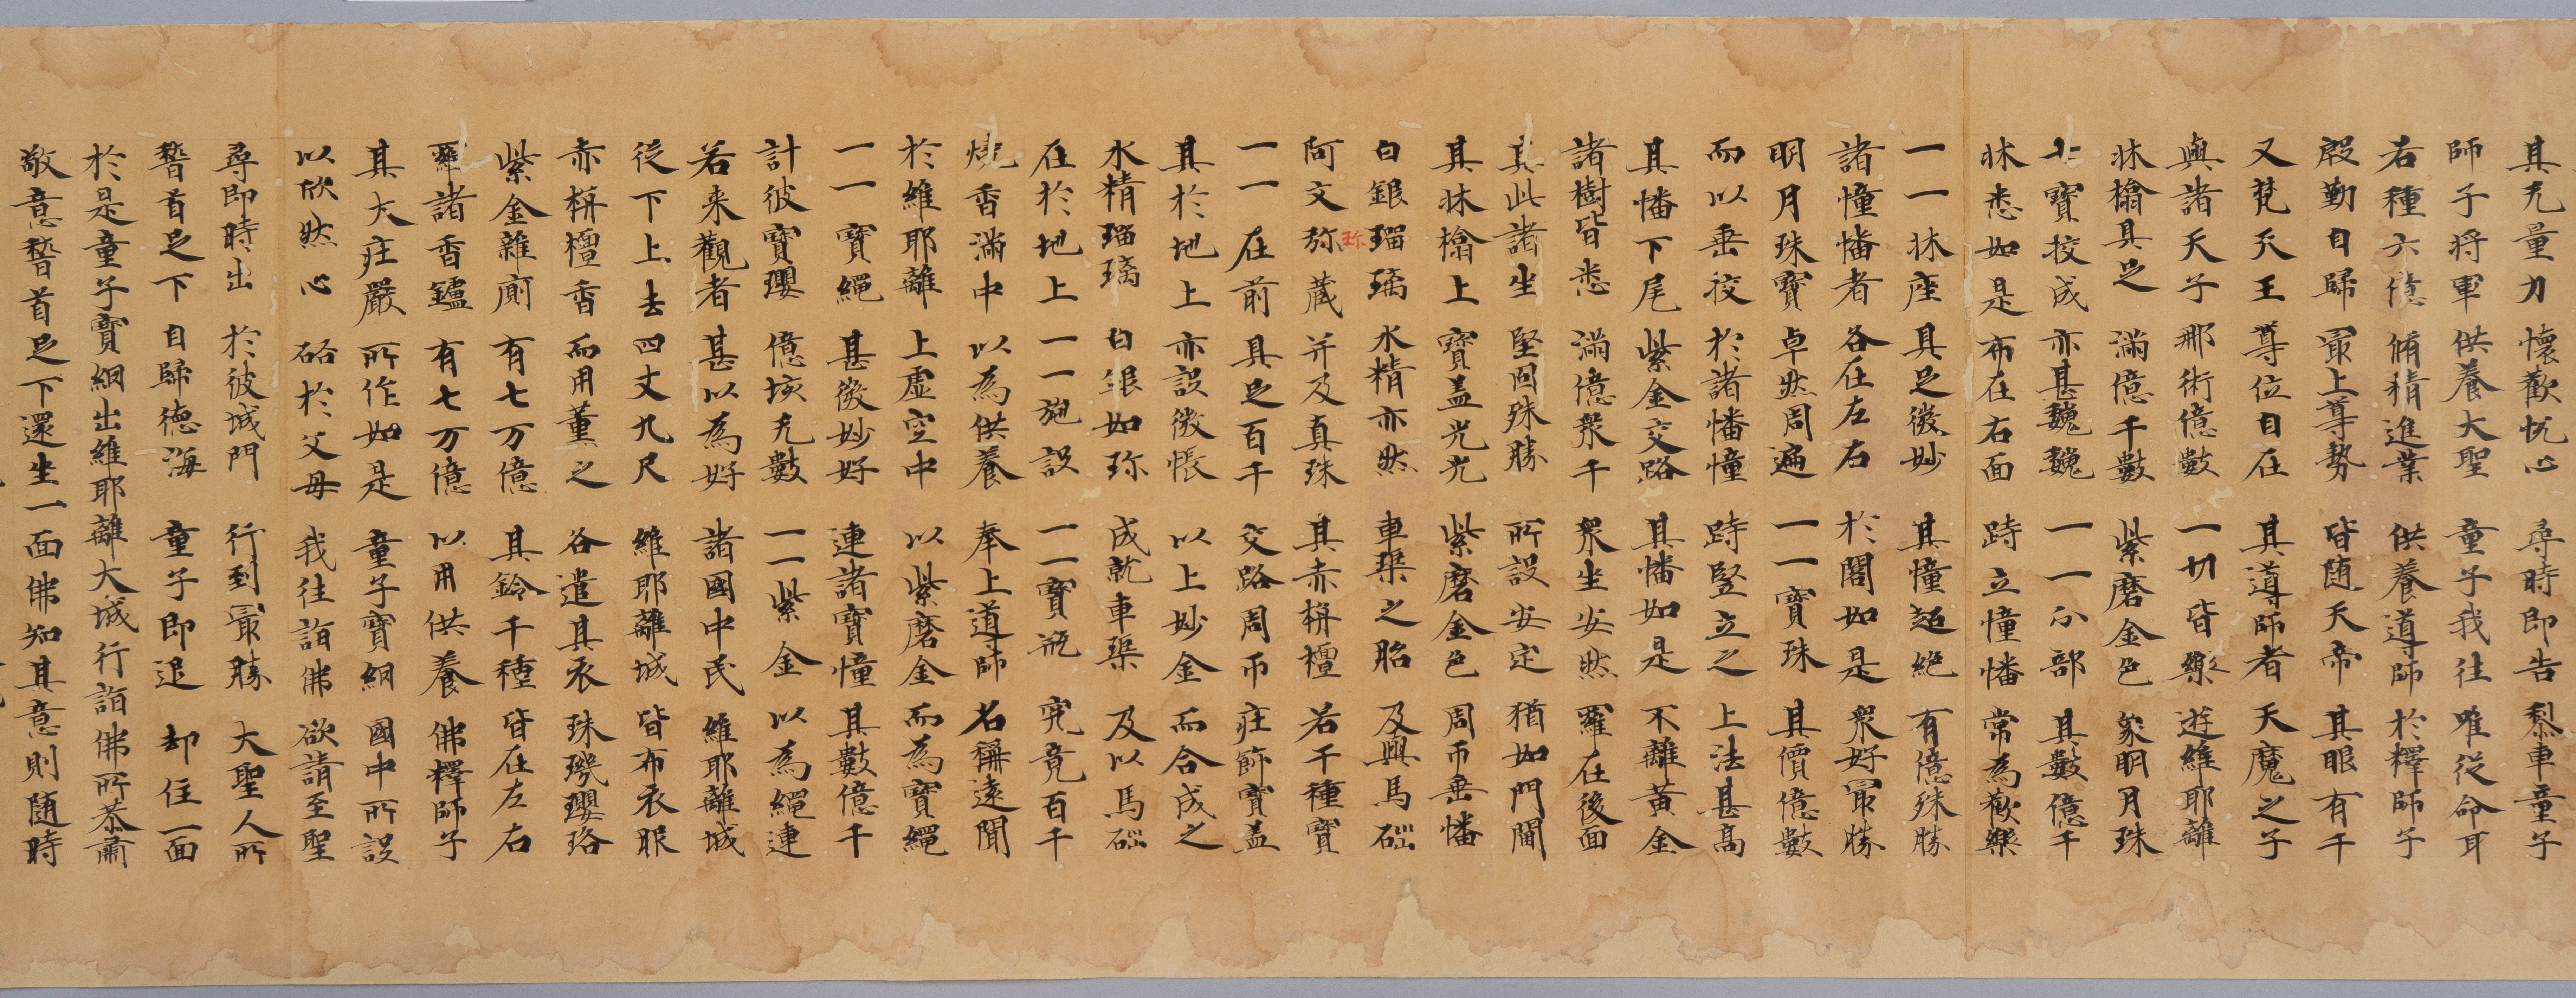 其无量力　懷歡忱心　尋時即告　梨車童子
師子将軍　供養大聖　童子我往　唯從命耳
右種六億　脩精進業　供養道師　於釋師子
殷勤自歸　冣上尊勢　皆随天帝　其眼有千
又梵天王　尊位自在　其導師者　天魔之子
與諸天子　那術億數　一切皆樂　遊維耶離
牀榻具足　滿億千數　紫磨金色　象明月珠
七寶挍成　亦甚巍巍　一一分部　其數億千
牀悉如是　布在右面　跱立憧幡　常為歡樂
一一牀座　具足微妙　其憧超絶　有億殊勝
諸憧幡者　各在左右　於閣如是　衆好冣勝
明月珠寶　卓然周遍　一一寶珠　其價億數
而以垂挍　於諸幡憧　跱竪立之　上法甚高
其幡下尾　紫金交路　其幡如是　不離黃金
諸樹皆悉　滿億衆千　衆坐安然　羅在後面
其此諸坐　堅固殊勝　所設安定　猶如門閫
其牀榻上　寶盖光光　紫磨金色　周帀垂幡
白銀瑠璃　水精亦然　車璖之胎　及與馬碯
珎
阿文弥蔵　并及真珠　其赤栴檀　若干種寶
一一在前　具足百千　交路周帀　庄飾寶盖
其於地上　亦設微悵　以上妙金　而合成之
水精瑠璃　白銀如珎　成就車璖　及以馬碯
在於地上　一一施設　一一寶瓶　究竟百千
燒香滿中　以為供養　奉上道師　名稱遠聞
於維耶離　上虚空中　以紫磨金　而為寶繩
一一寶繩　甚微妙好　連諸寶憧　其數億千
計彼寶瓔　億垓无數　一一紫金　以為繩連
若来觀者　甚以為好　諸國中民　維耶離城
從下上去　四丈九尺　維耶離城　皆布衣服
赤栴檀香　而用薫之　各遣其衣　珠璣瓔珞
紫金雜廁　有七万億　其鈴千種　皆在左右
羅諸香鑪　有七万億　以用供養　佛釋師子
其大庄嚴　所作如是　童子寶網　國中所設
以欣然心　䂮於父母　我往詣佛　欲請至聖
尋即時出　於彼城門　行到冣勝　大聖人所
䭫首足下　自歸德海　童子即退　却住一面
於是童子寶網出維耶離大城行詣佛所恭肅
敬意䭫首足下還坐一面佛知其意則随時